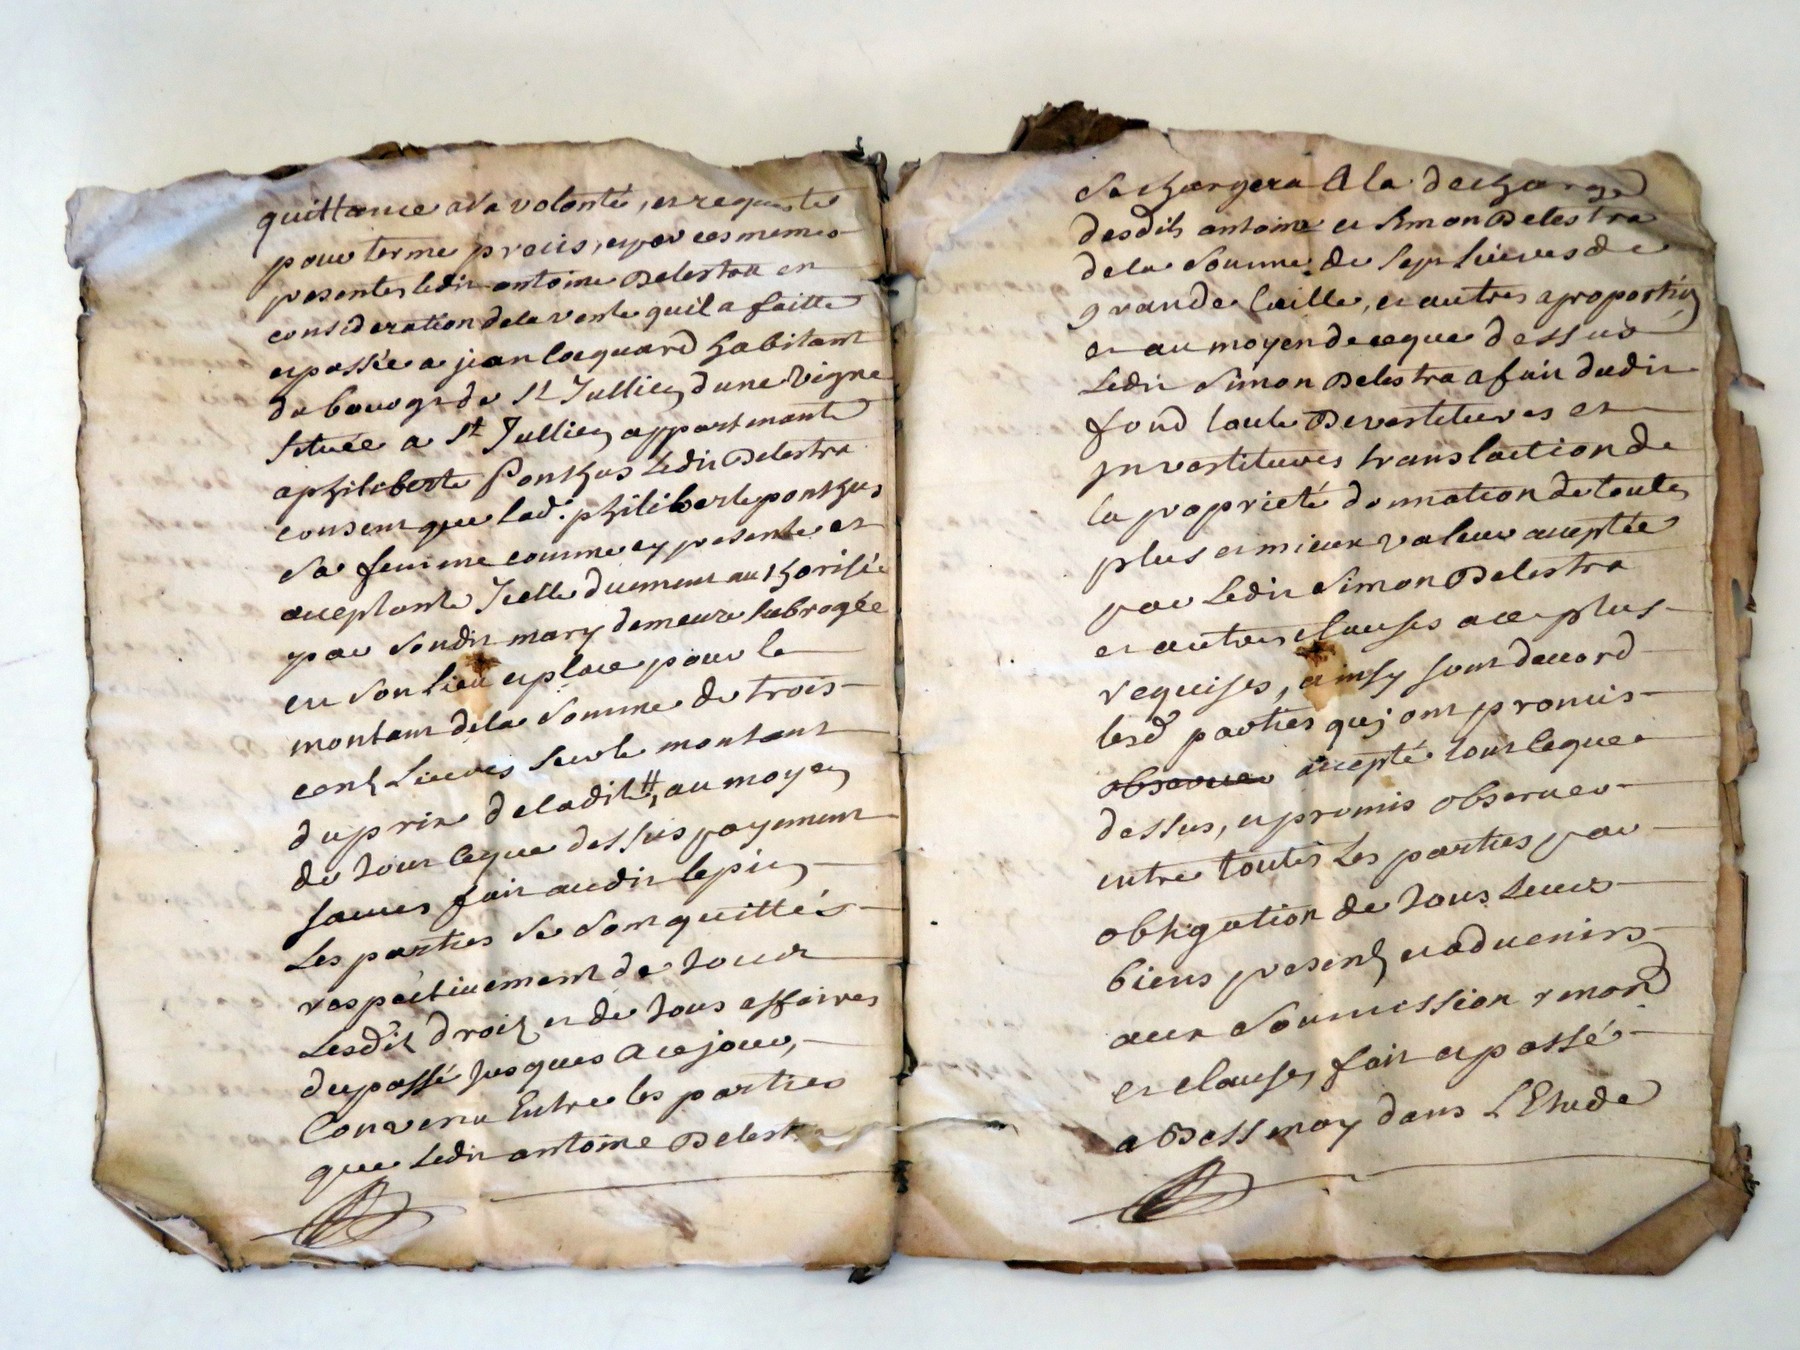 quittance a sa volonté, et requeste
pour terme precis, et par ces memes
presentes ledit antoine Delestra en
consideration de la vente qu'il a faitte
et passée a jean Coquard habitant
du bourg de St Jullien d'une vigne
située a St Jullien appartenante
a philiberte Ponthus ledit Delestra
consent que lad. philiberte ponthus
sa femme comme cy presente et
acceptante Icelle duement authorisée
par sondit mary demeure subrogée
en son lieu et place pour le
montant de la somme de trois
cents Livres sur le montant
du prix de ladite #, au moyen
de tout ce que dessus payement
fait audit lepin
Les parties se sont quittés
respectivement de tout
Lesdits droits et de tous affaires
du passé jusques a ce jour,
Convenu Entre les parties
que Ledit antoine Delestra
se chargera A la decharge
desdits antoine et simon Delestra
de la somme de sept Livres de
grande taille, et autres a proportion
et au moyen de ce que dessus
Ledit Simon Delestra a fait dudit
fond toute Devestitures et
Investitures translaction de
la proprieté donnation de toutes
plus et mieux value acceptée
par Ledit Simon Delestra
et autres clauses a ce plus
requises, ainsy sont d'accord
lesd parties quj ont promis
observer accepté tout ce que
dessus, et promis observer
entre toutes Les parties par
obligation de tous Leurs
biens presents et advenirs
aux soumission renond
et clauses, fait et passé
a Dess may dans L'Etude